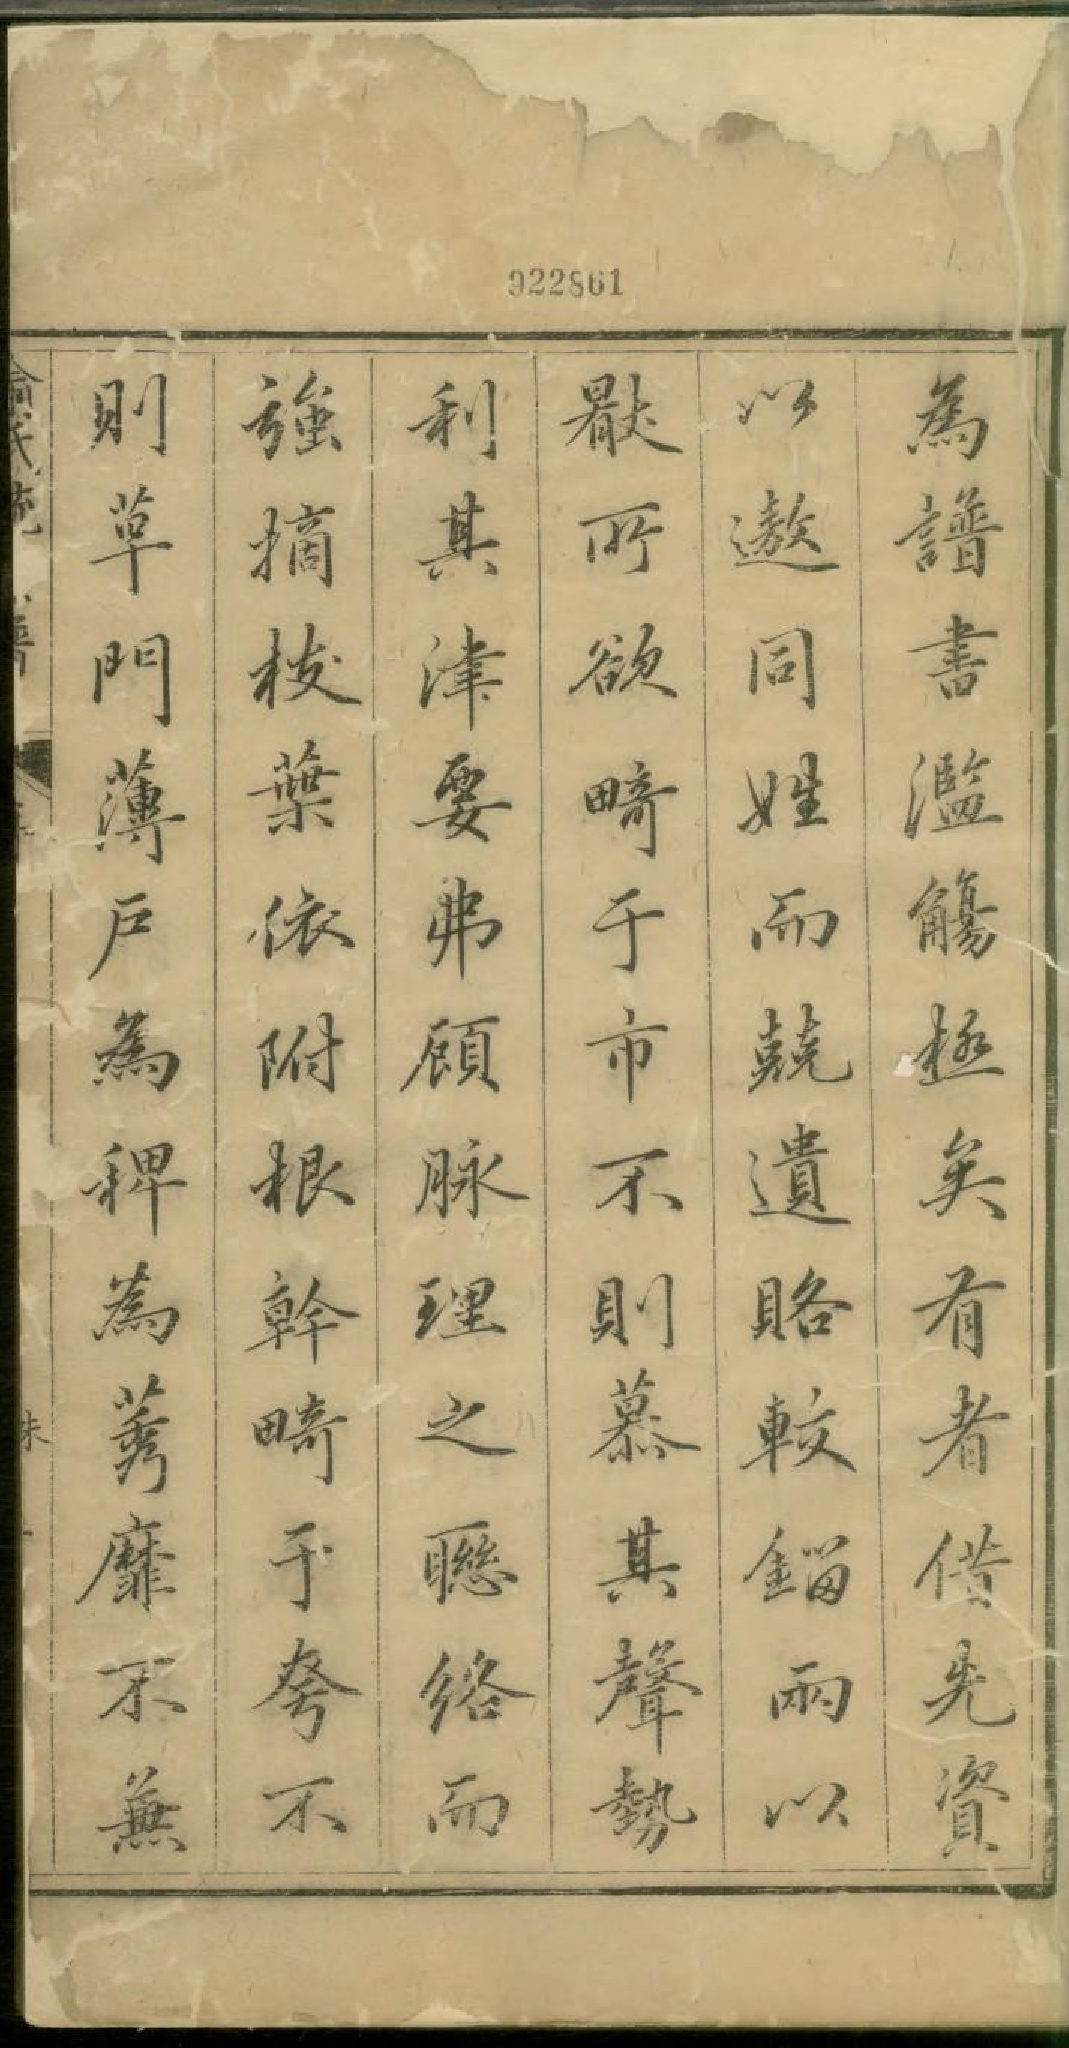 922861
為譜書濫觴極矣有者借先資
以遨同姓而兢遺賂較錙兩以
厭所欲畸于市不則慕其聲勢
利其津要弗顧脉理之聯絡而
強摘枝葉依附根幹畸于夸不
則草門薄戶為稗為莠靡不蕪
氏統譜